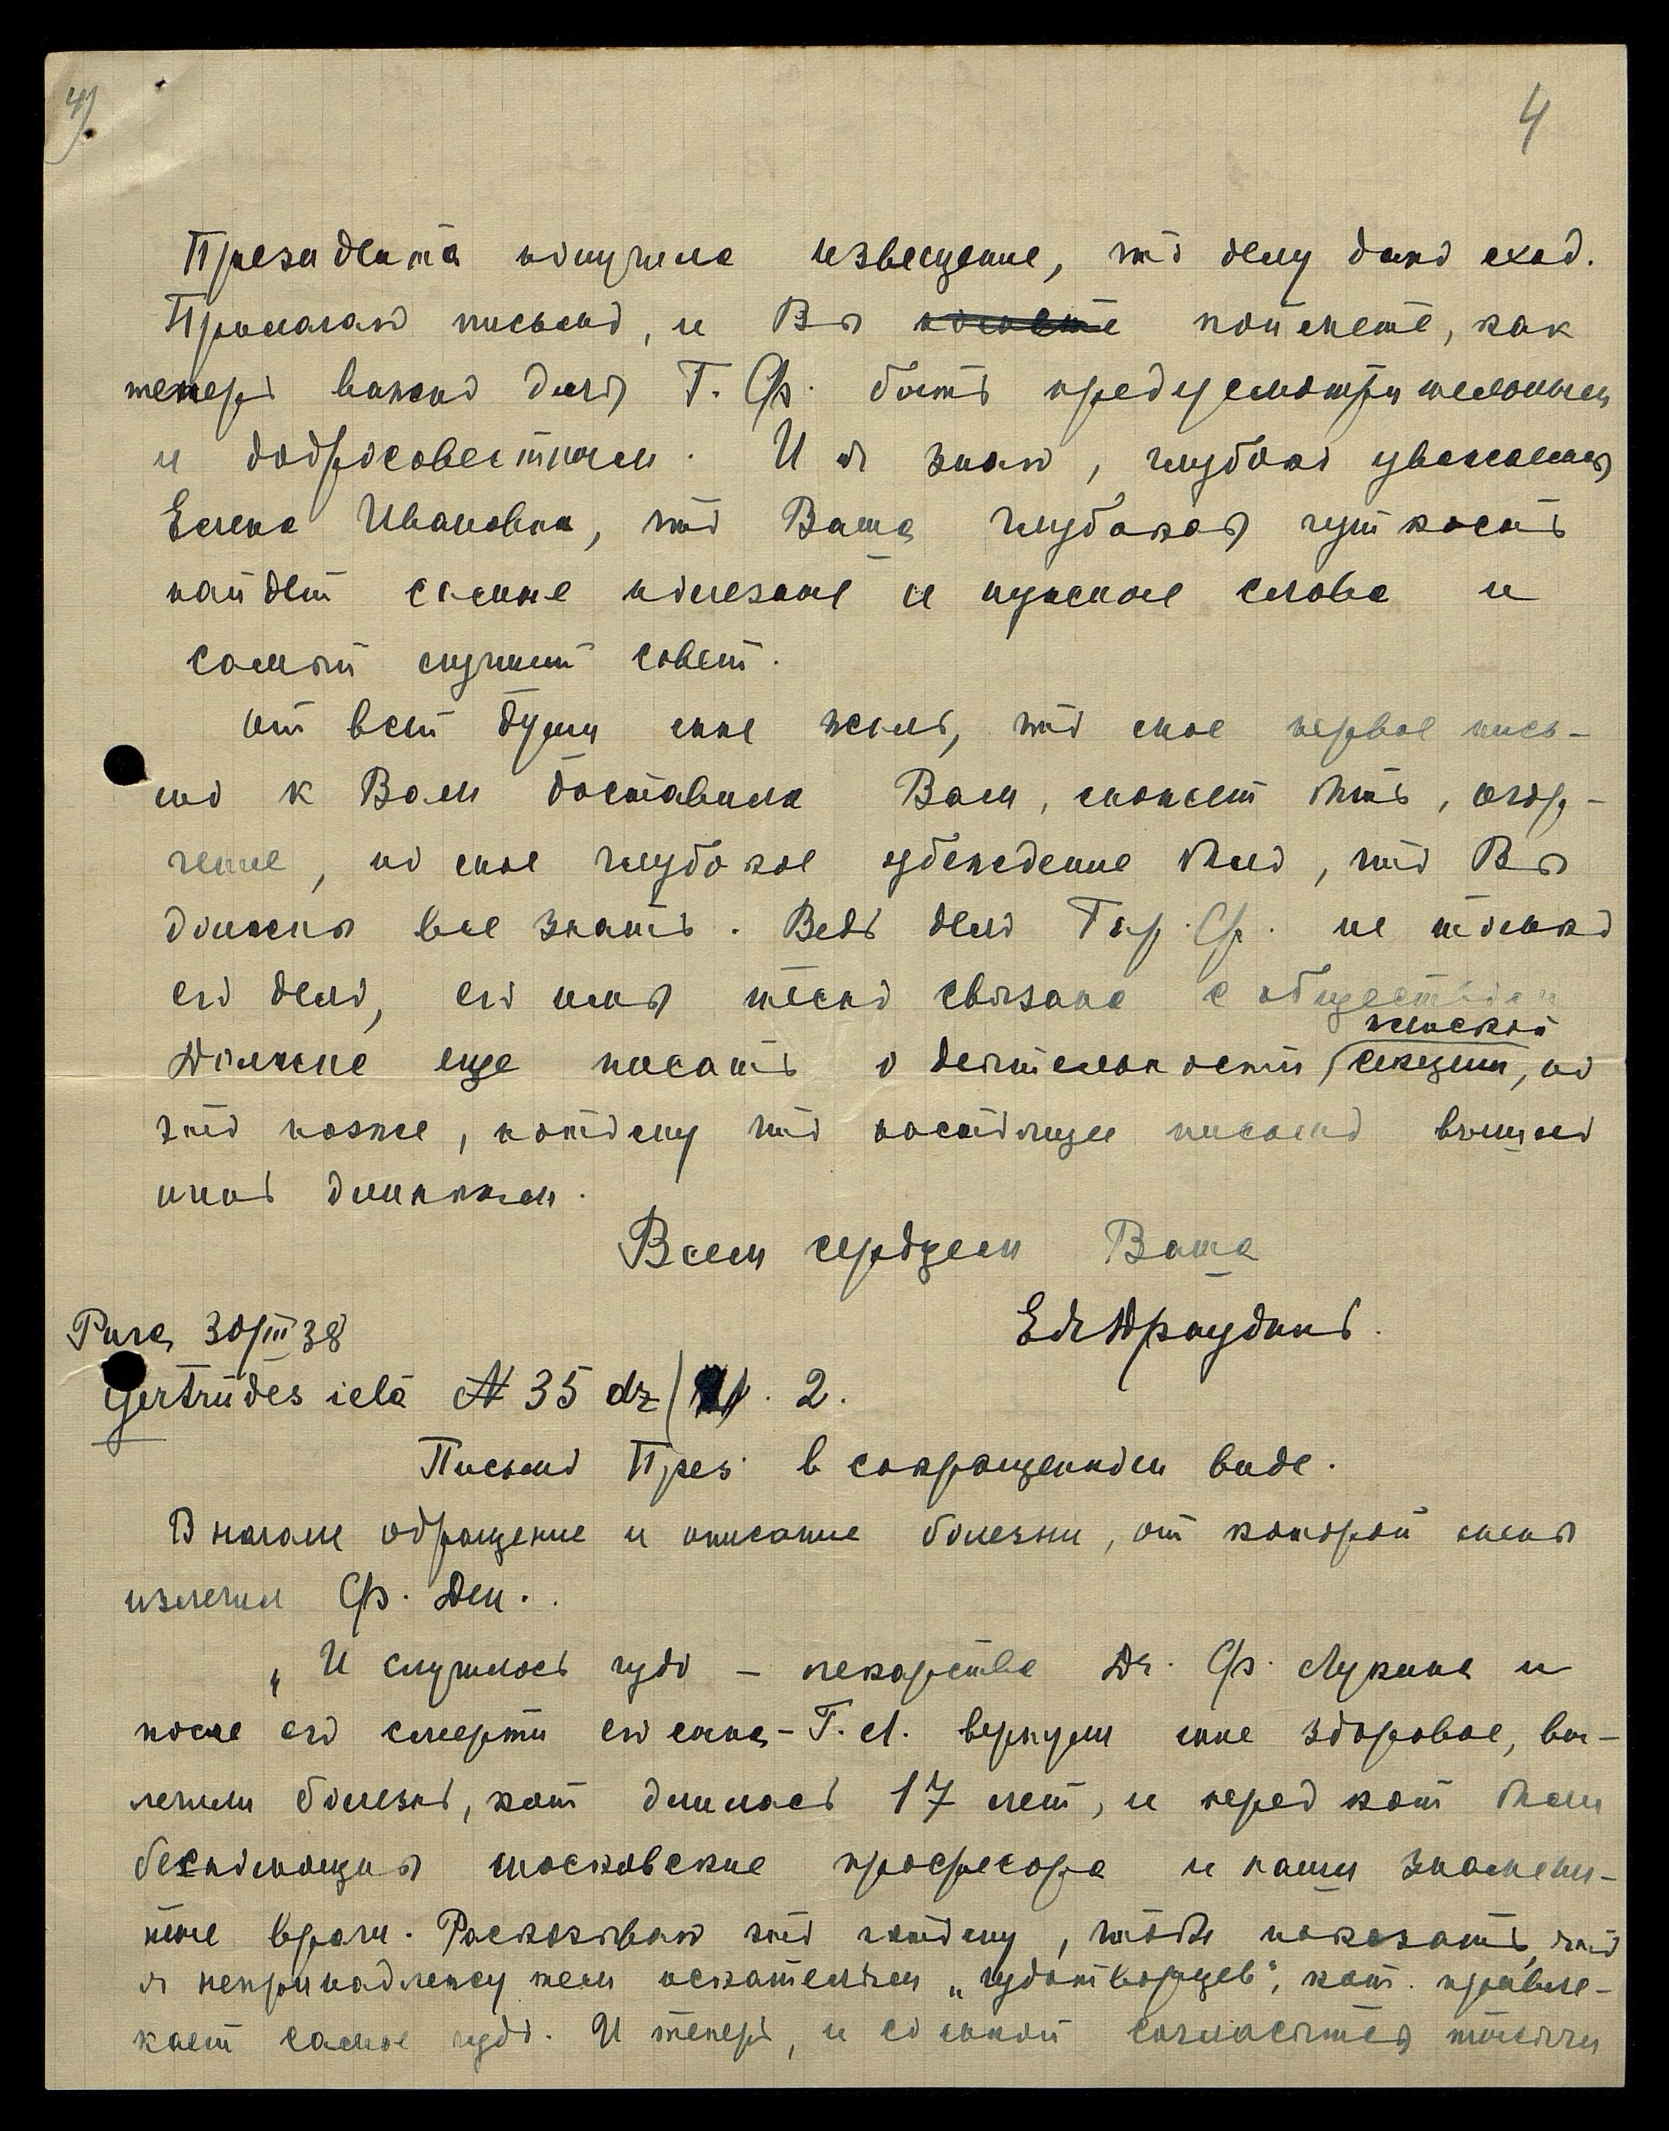 4)
4
Президента получила извещение, что делу дано ход.
Прилагаю письмо, и Вы поймете, как
теперь важно для Г. Ф. быть предусмотрительным
и добросовестным. И я знаю, глубоко уважаемая
Елена Ивановна, что Ваша глубокая чуткость
найдет самые полезные и нужные слова и
самый лучший совет.
От всей души мне жаль, что мое первое пись-
мо к Вам доставила Вам, может быть, огор-
чение, но мое глубокое убеждение было, что Вы
должны все знать. Ведь дело Гар. Ф. не только
его дело, его имя тесно связано с обществом
женской
Должна еще писать о деятельности секции, но
это позже, потому что настоящее письмо вышло
очень длинным.
Всем сердцем Ваша
Ел Драудинь.
Рига, 30/III 38
Gertrūdes ielā № 35 dz. 2.
Письмо През. в сокращенном виде.
В начале обращение и описание болезни, от которой меня
излечил Ф. Ден..
„И случилось чудо – лекарства Др. Ф. Лукина и
после его смерти его сына – Г. Л. вернули мне здоровье, вы-
лечили болезнь, кот длилась 17 лет, и перед кот были
беспомощны московские профессора и наши знамени-
тые врачи. Рассказываю это потому, чтобы показать, что
я непринадлежу тем искателям „чудотворцев“, кот. привле-
кает самое чудо. И теперь, и со мной согласятся тысячи